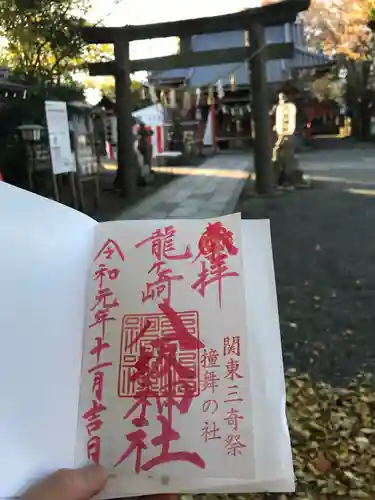 関東三奇祭
撞舞の社
奉拝
龍ヶ崎
八坂神社
令和元年十一月吉日